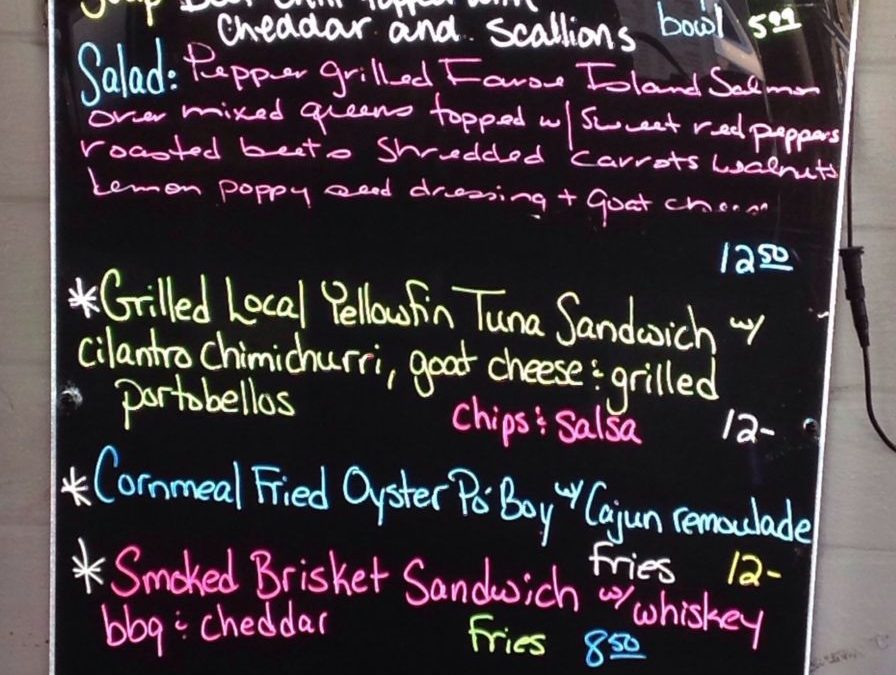 Soup Beef Chili topped with
cheddar and scallions bowl 5.99
Salad: Pepper grilled Faroe Island Salmon
over mixed greens topped w/ Sweet red peppers
roasted beets Shredded Carrots Walnuts
Lemon poppy seed dressing + goat cheese
12 50
*Grilled Local Yellowfin Tuna Sandwich w/
cilantro chimichurri, goat cheese & grilled
portobellos
chips & Salsa 12-
*Cornmeal Fried Oyster Po' Boy w/ Cajun remoulade
fries 12-
*Smoked Brisket Sandwich w/ whiskey
bbq & cheddar
fries 8 50